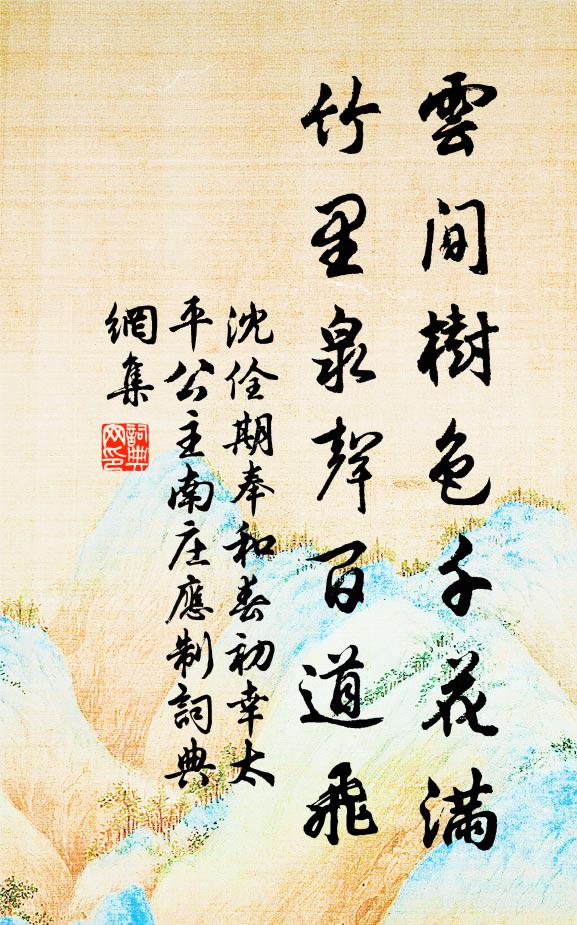 雲間樹色千花滿
竹里泉聲百道飛
沈佺期奉和春初幸太
平公主南庄應制詞典
網集
詞典
网印